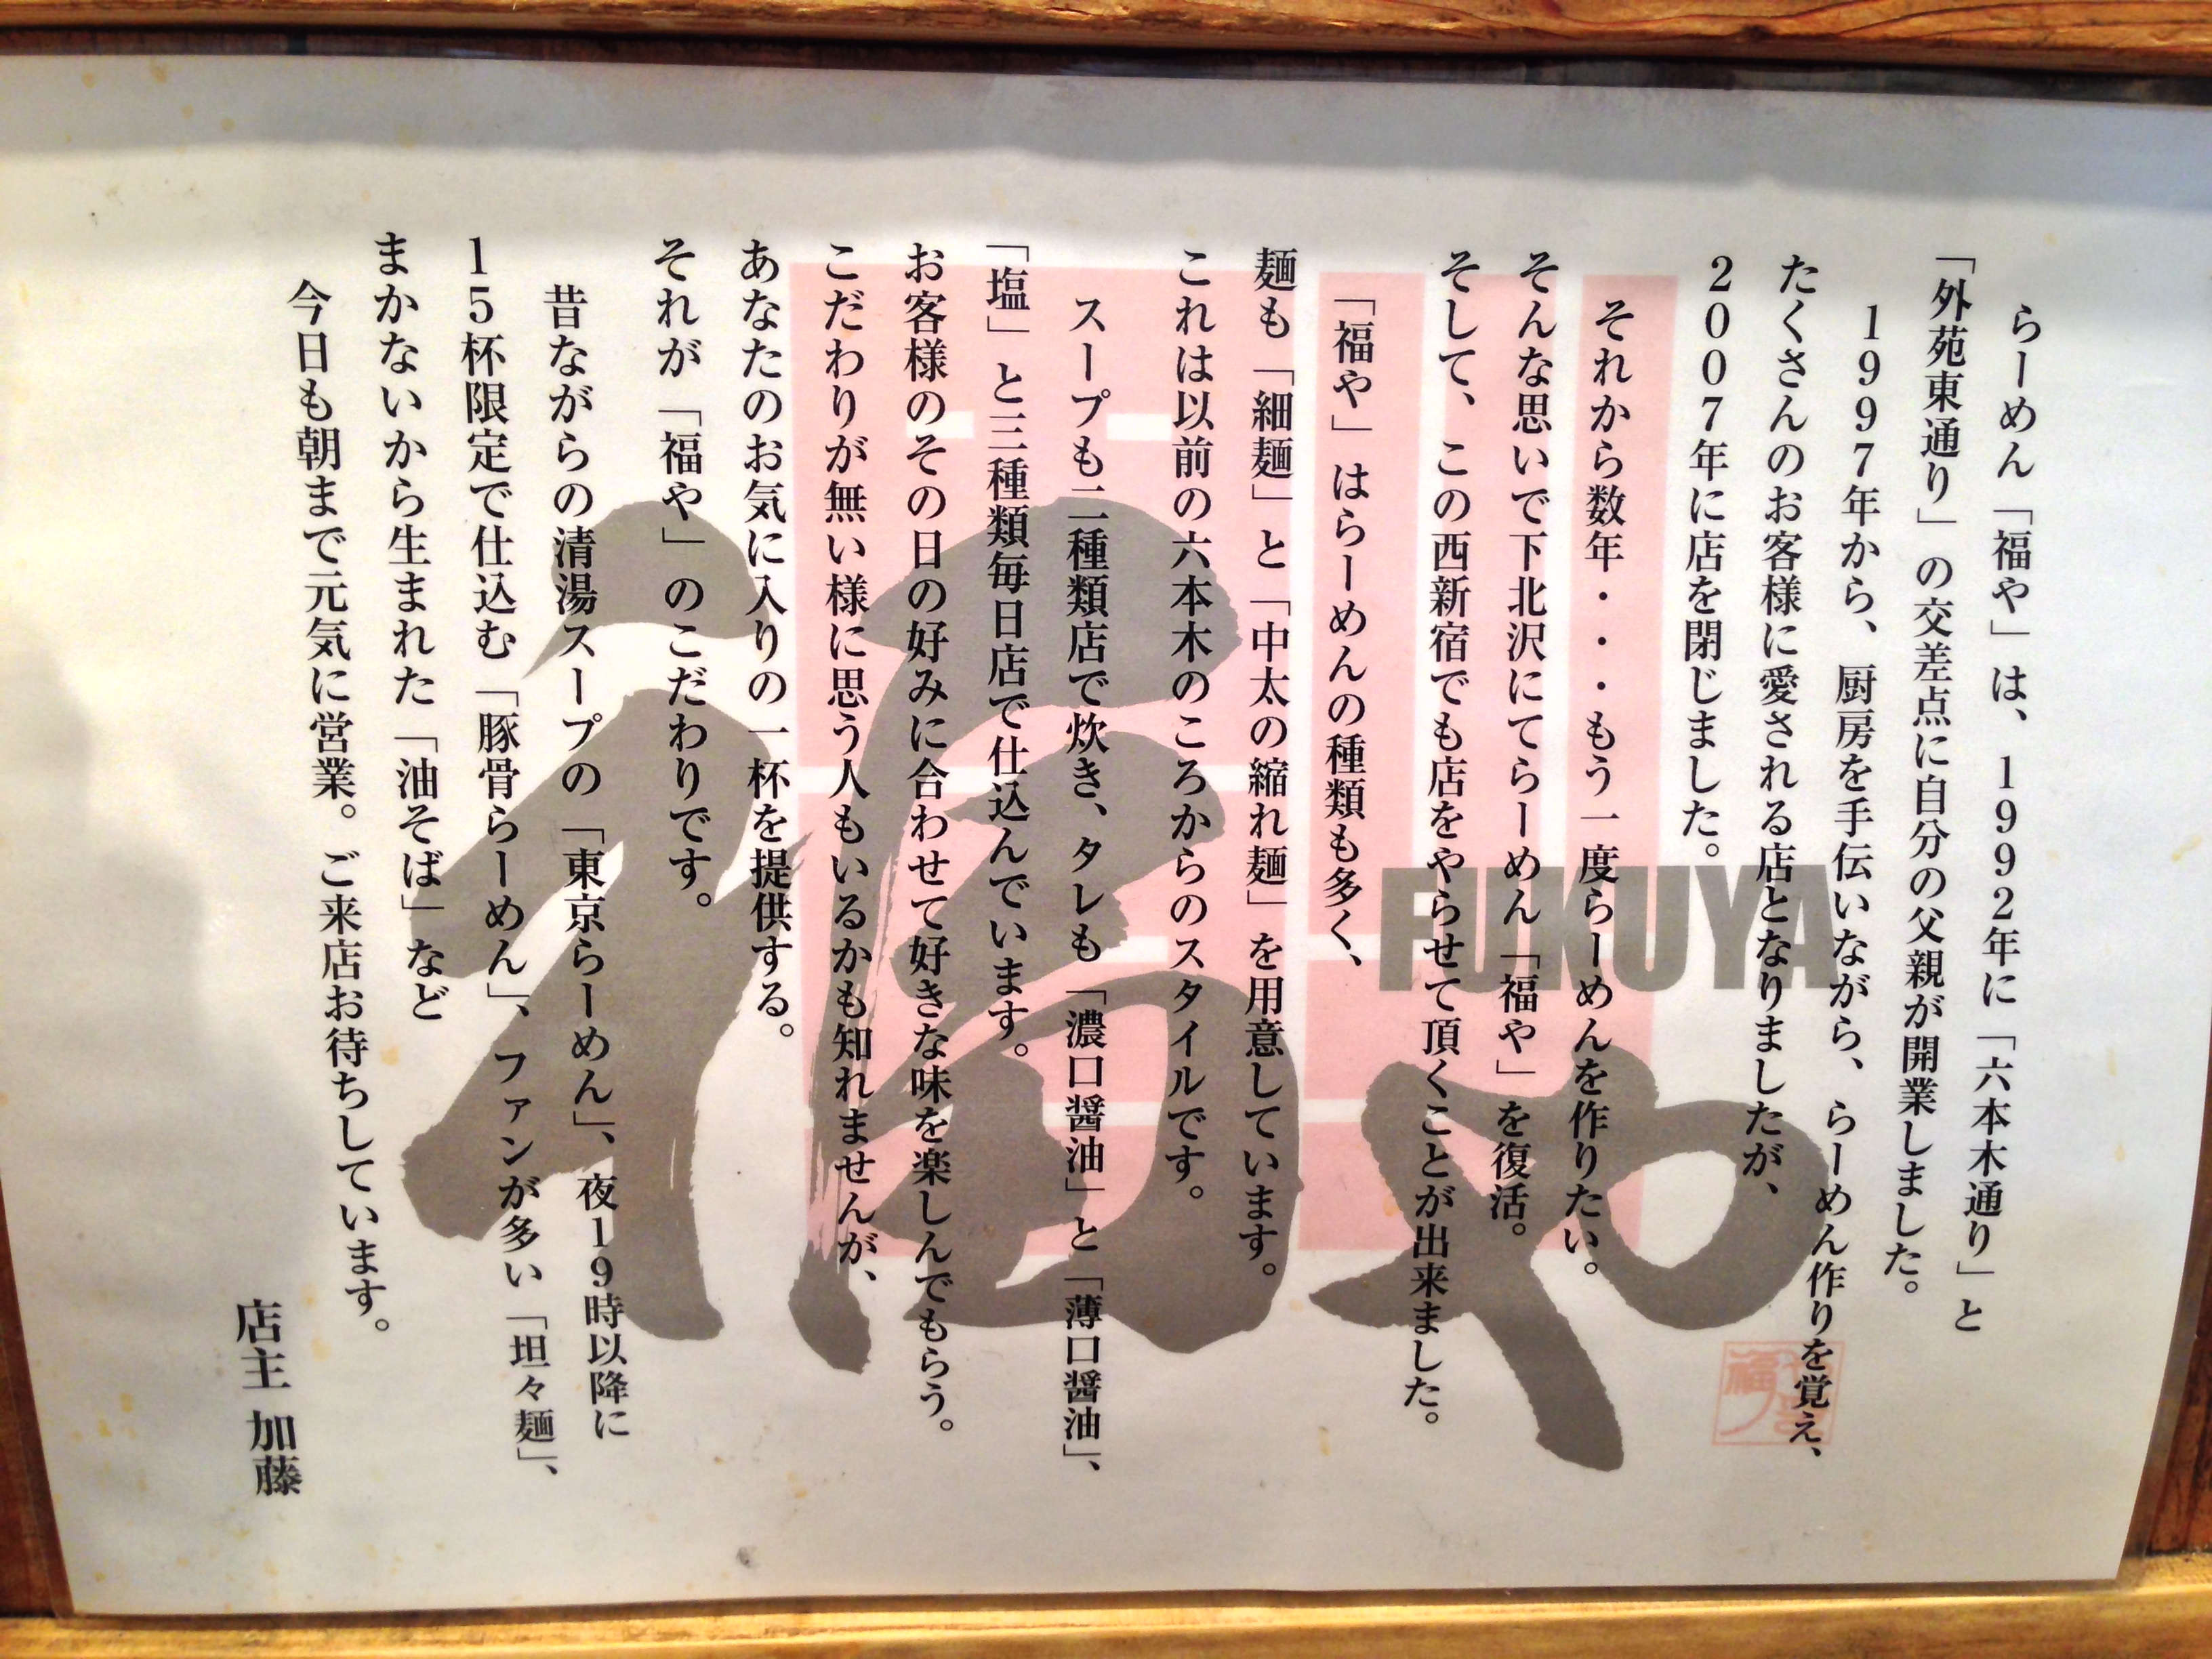 らーめん「福や」は、1992年に「六本木通り」と
「外苑東通り」の交差点に自分の父親が開業しました。
1997年から、厨房を手伝いながら、らーめん作りを覚え、
たくさんのお客様に愛される店となりましたが、
2007年に店を閉じました。
それから数年・・・もう一度らーめんを作りたい。
そんな思いで下北沢にてらーめん「福や」を復活。
そして、この西新宿でも店をやらせて頂くことが出来ました。
「福や」はらーめんの種類も多く、
麺も「細麺」と「中太の縮れ麺」を用意しています。
これは以前の六本木のころからのスタイルです。
スープも二種類店で炊き、タレも「濃口醤油」と「薄口醤油」、
「塩」と三種類毎日店で仕込んでいます。
お客様のその日の好みに合わせて好きな味を楽しんでもらう。
こだわりが無い様に思う人もいるかも知れませんが、
あなたのお気に入りの一杯を提供する。
それが「福や」のこだわりです。
昔ながらの清湯スープの「東京らーめん」、夜19時以降に
15杯限定で仕込む「豚骨らーめん」、ファンが多い「坦々麺」、
まかないから生まれた「油そば」など
今日も朝まで元気に営業。ご来店お待ちしています。
店主 加藤
福や
FUKUYA